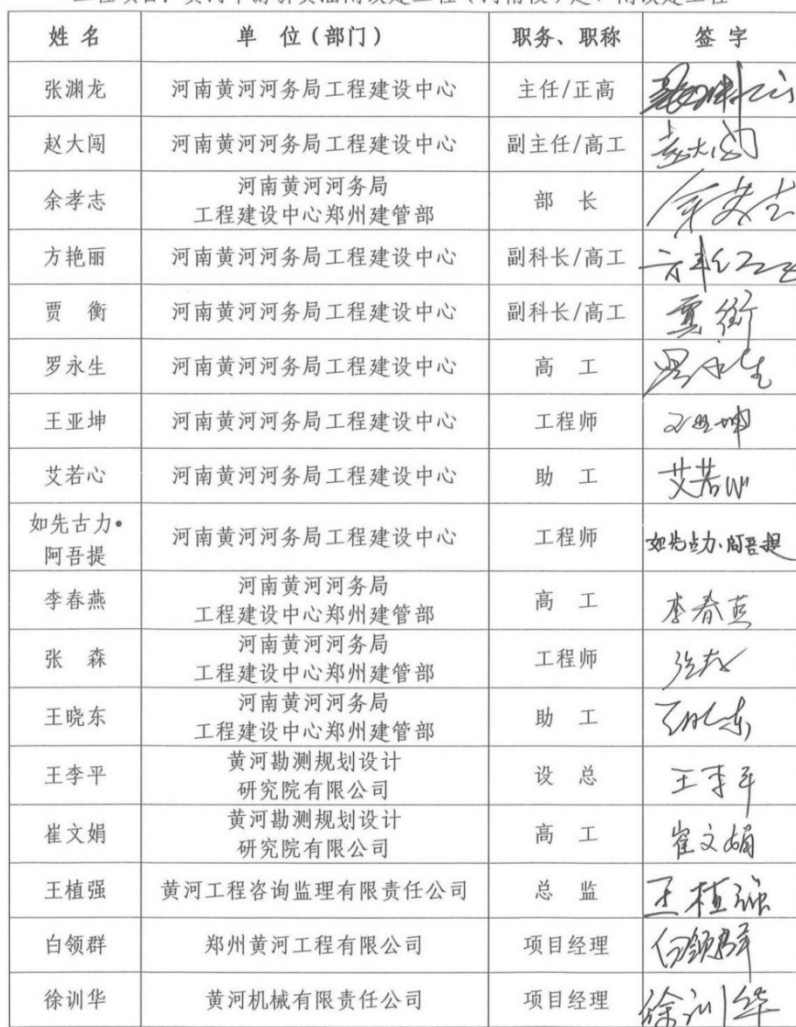 姓 名 单 位(部门) 职务、职称 签 字
张渊龙 河南黄河河务局工程建设中心 主任/正高
赵大闯 河南黄河河务局工程建设中心 副主任/高工 赵大闯
余孝志 河南黄河河务局 工程建设中心郑州建管部 部 长 余孝志
方艳丽 河南黄河河务局工程建设中心 副科长/高工
贾 衡 河南黄河河务局工程建设中心 副科长/高工 贾衡
罗永生 河南黄河河务局工程建设中心 高 工 罗永生
王亚坤 河南黄河河务局工程建设中心 工程师 王亚坤
艾若心 河南黄河河务局工程建设中心 助 工 艾若心
如先古力•
阿吾提 河南黄河河务局工程建设中心 工程师 如先古力·阿吾提
李春燕 河南黄河河务局
工程建设中心郑州建管部 高 工 李春燕
张 森 河南黄河河务局
工程建设中心郑州建管部 工程师 张森
王晓东 河南黄河河务局
工程建设中心郑州建管部 助 工 王晓东
王李平 黄河勘测规划设计
研究院有限公司 设 总 王李平
崔文娟 黄河勘测规划设计
研究院有限公司 高 工 崔文娟
王植强 黄河工程咨询监理有限责任公司 总 监 王植强
白领群 郑州黄河工程有限公司 项目经理 白领群
徐训华 黄河机械有限责任公司 项目经理 徐训华